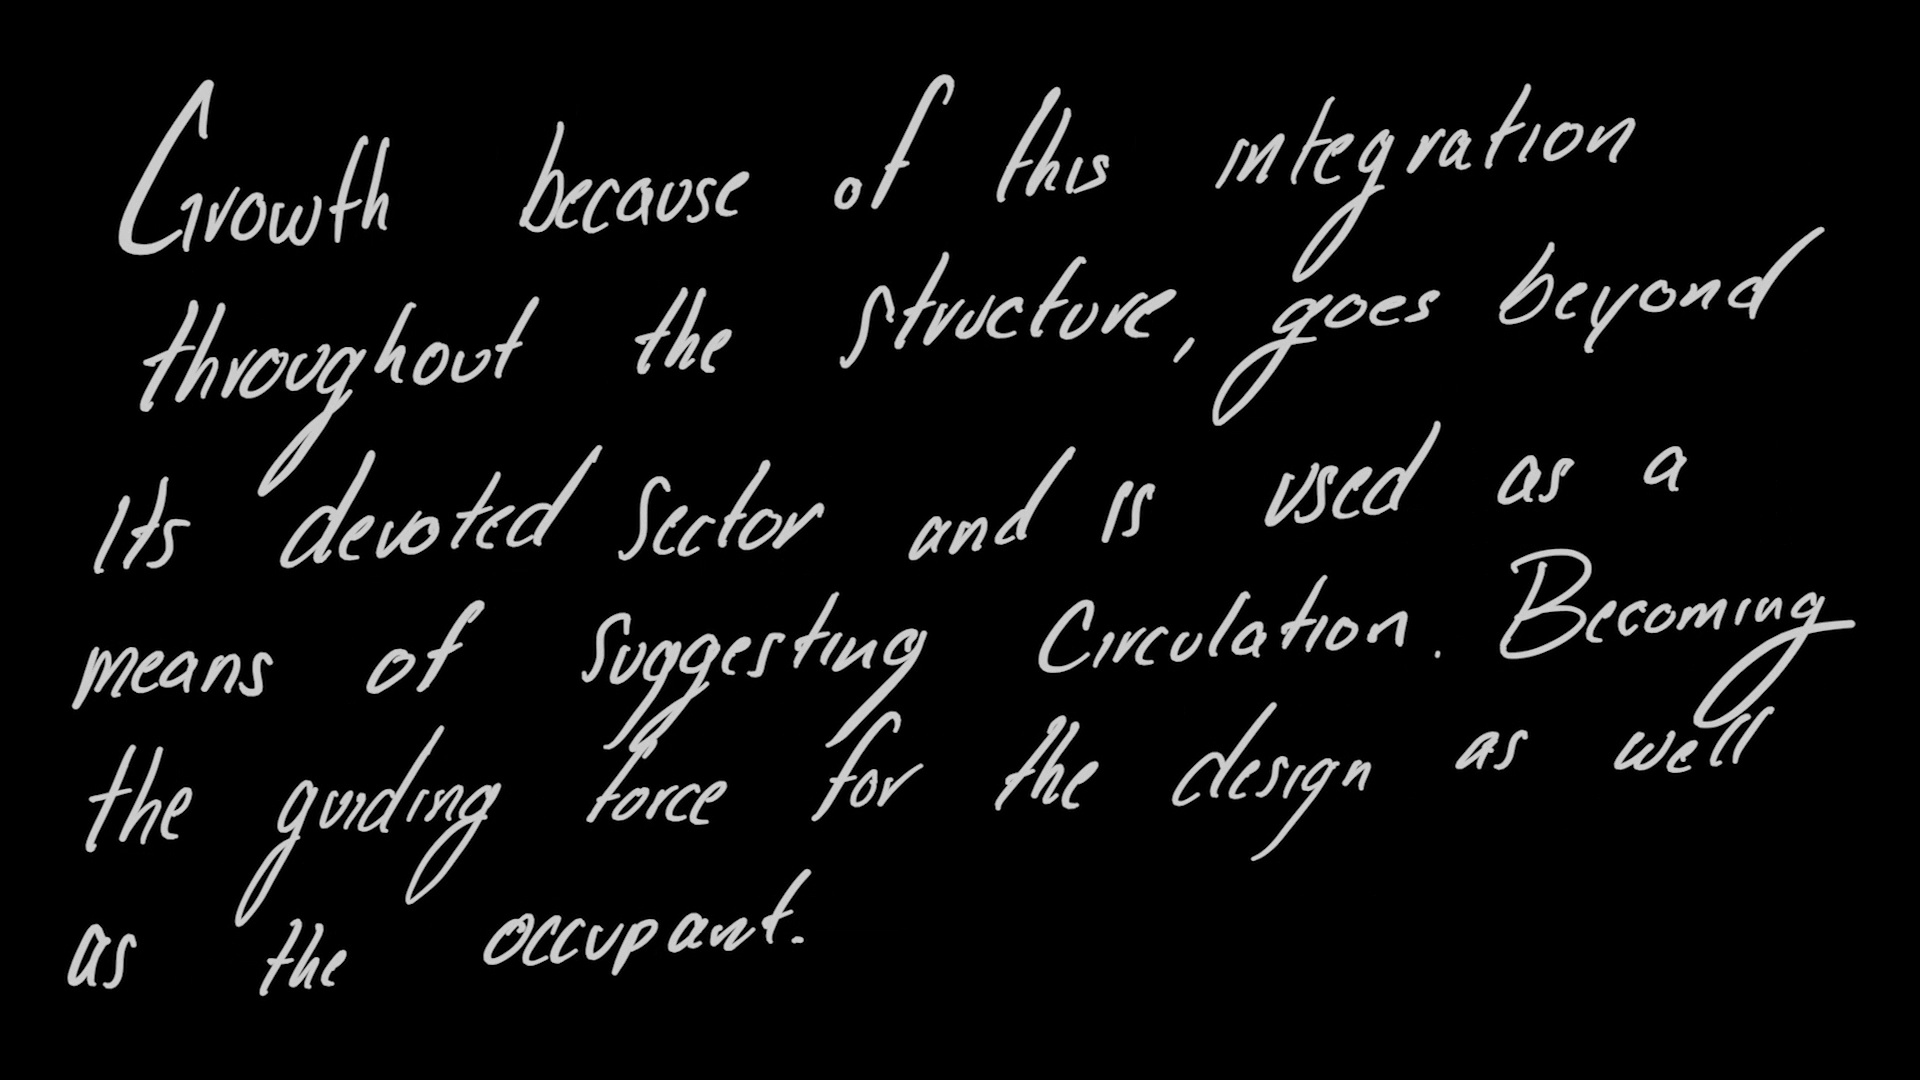 Growth because of this integration
throughout the structure, goes beyond
its devoted sector and is used as a
means of suggesting circulation. Becoming
the guiding force for the design as well
as the occupant.